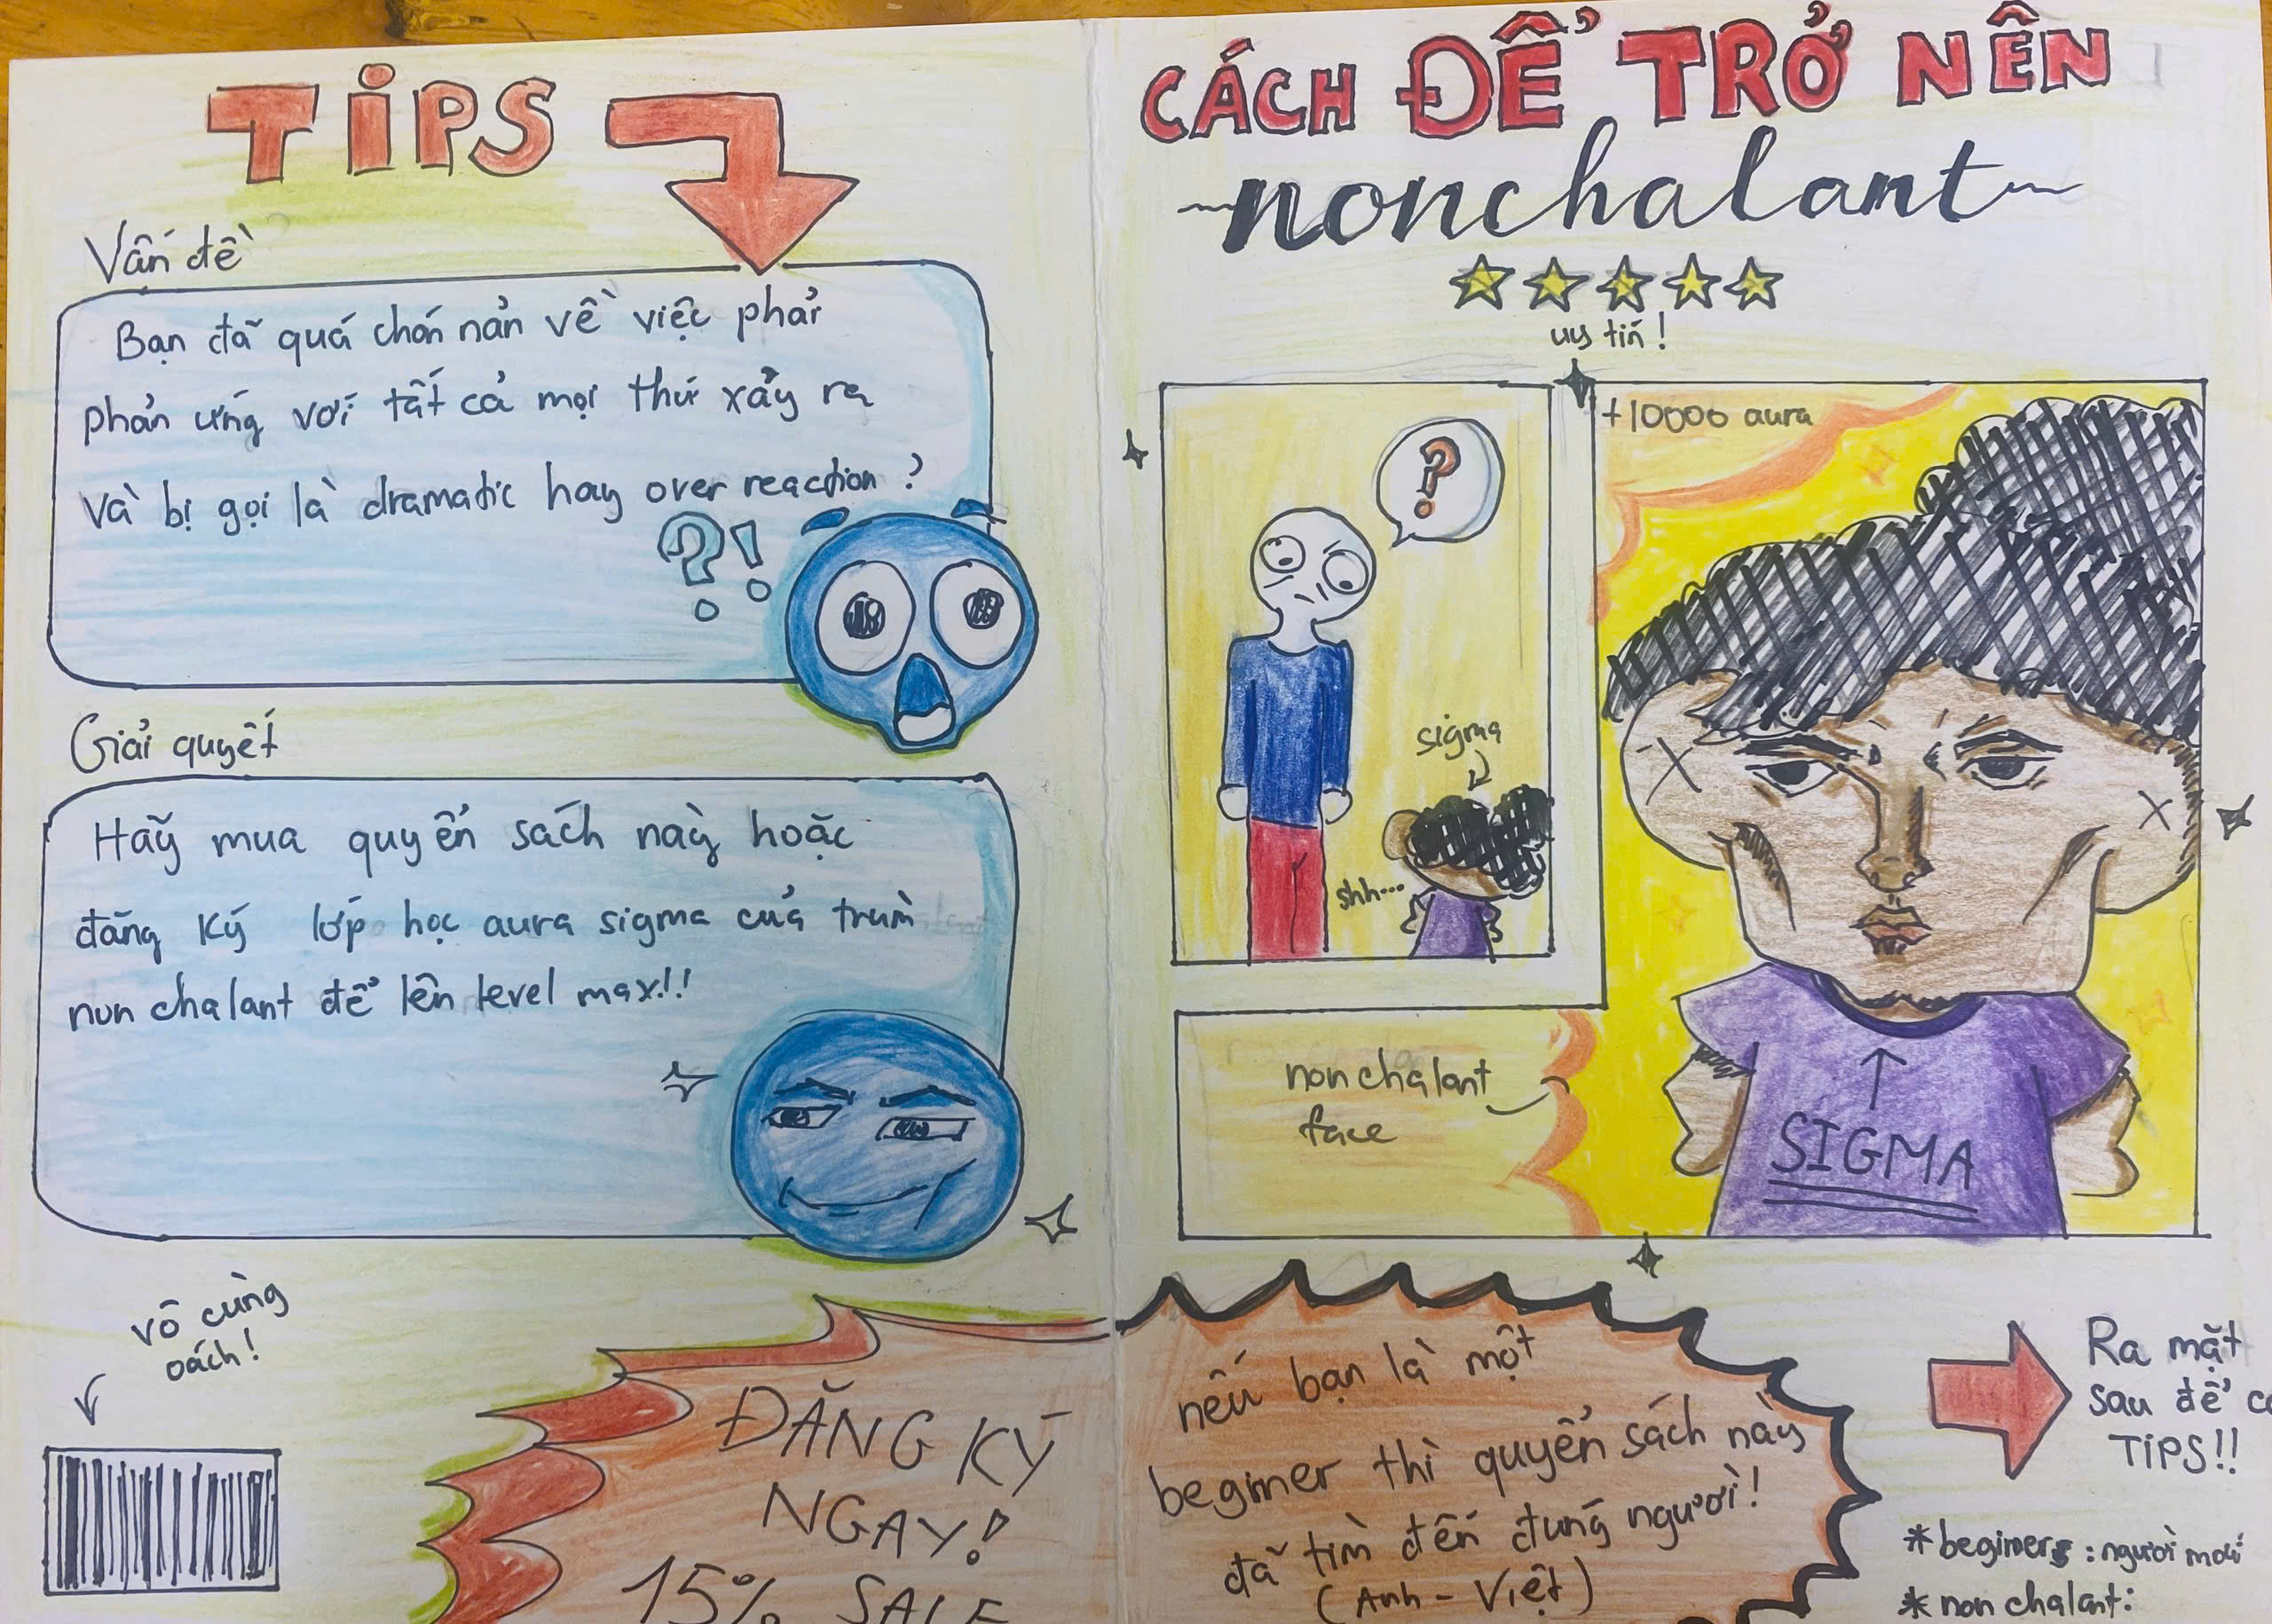 TiPS
Vấn đề
Bạn đã quá chán nản về việc phải
phản ứng với tất cả mọi thứ xảy ra
và bị gọi là dramatic hay over reaction ?
?!
Giải quyết
Hãy mua quyển sách này hoặc
đăng ký lớp học aura sigma của trùm
non chalant để lên level max!!
vô cùng
oách!
ĐĂNG KÝ
NGAY!
15% SALE
CÁCH ĐỂ TRỞ NÊN
~nonchalant~
uy tín!
?
sigma
shh...
+10000 aura
SIGMA
non chalant
face
nếu bạn là một
beginner thì quyển sách này
đã tìm đến đúng người!
(Anh - Việt)
Ra mặt
sau để
TiPS!!
* beginners : người mới
* non chalant: